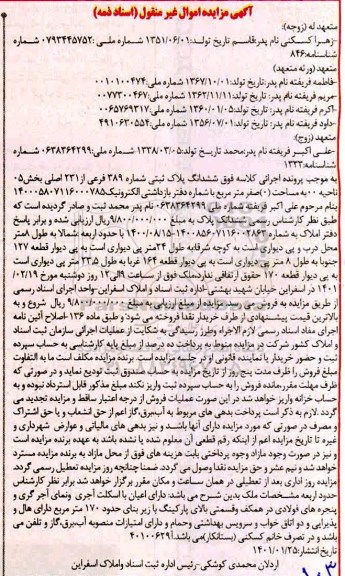 آگهی مزایده اموال غیر منقول (اسناد ذمه)
متعهد له (زوجه):
-زهرا کسکنی نام پدر:قاسم تاریخ تولد:۱۳۵۱/۰۶/۰۱ شماره ملی :۰۷۹۳۴۴۵۷۵۲ شماره
شناسنامه:۸۴۶
متعهد (ورثه متعهد)
-فاطمه فریفته نام پدر: تاریخ تولد:۱۳۶۷/۱۰/۰۱ شماره ملی:۰۰۱۰۱۰۰۴۷۴
-مریم فریفته نام پدر: تاریخ تولد:۱۳۶۲/۱۱/۱۱ شماره ملی:۰۰۷۷۳۰۰۴۶۷
-اکرم فریفته نام پدر: تاریخ تولد:۱۳۶۰/۰۱/۰۵ شماره ملی:۰۰۶۵۷۶۹۳۱۷
-داود فریفته نام پدر: تاریخ تولد:۱۳۵۶/۰۷/۰۱ شماره ملی:۴۹۱۰۶۳۰۵۵۴
متعهد (زوج)
-علی اکبر فریفته نام پدر:محمد تاریخ تولد:۱۳۳۸/۰۳/۰۵ شماره ملی:۰۶۳۸۳۶۴۲۹۹ شماره
شناسنامه:۱۳۳۲
به موجب پرونده اجرائی کلاسه فوق ششدانگ پلاک ثبتی شماره ۳۸۹ فرعی از ۲۳۱ اصلی بخش۰۵
ناحیه ۰۰ به مساحت (۰)صفر متر مربع با شماره دفتر بازداشتی الکترونیک۱۴۰۰۰۵۸۰۷۱۱۶۰۰۰۷۸۵
بنام مرحوم علی اکبر فریفته شماره ملی ۰۶۳۸۳۶۴۲۹۹ نام پدر محمد ثبت و صادر گردیده است که
طبق نظر کارشناس رسمی ششدانگ پلاک به مبلغ ۹/۸۰۰/۰۰۰/۰۰۰ریال ارزیابی شده و برابر پاسخ
دفتر املاک به شماره ۱۴۰۰۸۵۶۰۷۱۱۶۰۰۲۸۶۲-۱۴۰۰/۰۸/۱۵ با حدود اربعه :شمالا به طول ۸متر
محل درب و پی دیواری است به کوچه شرقابه طول ۲۴متر پی دیواری است به پی دیوار قطعه ۱۲۷
جنوبا به طول ۸ متر پی دیواری است به پی دیوار قطعه ۱۶۴ غربا به طول ۲۳.۵ متر پی دیواری است
به پی دیوار قطعه ۱۷۰ حقوق ارتفاقی ندارد،ملک فوق از ساعت ۹الی۱۲ روز دوشنبه مورخ ۰۲/۱۹/
۱۴۰۱ در اسفراین خیابان شهید بهشتی-اداره ثبت اسناد و املاک اسفراین-واحد اجرای اسناد رسمی
از طریق مزایده به فروش می رسد.مزایده از مبلغ ارزیابی به مبلغ ۹/۸۰۰/۰۰۰/۰۰۰ ریال شروع و به
بالاترین قیمت پیشنهادی از طرف خریدار نقدا فروخته می شود و طبق ماده ۱۳۶ -اصلاح آئین نامه
اجرای مفاد اسناد رسمی لازم الاجراء وطرز رسیدگی به شکایت از عملیات اجرائی سازمان ثبت اسناد
و املاک کشور شرکت در مزایده منوط به پرداخت ده درصد از مبلغ پایه کارشناسی به حساب سپرده
ثبت و حضور خریدار یا نماینده قانونی او در جلسه مزایده است. برنده مزایده مکلف است ما به التفاوت
مبلغ فروش را ظرف مدت پنج روز از تاریخ مزایده به حساب صندوق ثبت تودیع نماید و در صورتی که
ظرف مهلت مقرر،مانده فروش را به حساب سپرده ثبت واریز نکند مبلغ مذکور قابل استرداد نبوده و به
حساب خزانه واریز خواهد شد در این صورت عملیات فروش از درجه اعتبار ساقط و مزایده تجدید می
گردد .لازم به ذکر است پرداخت بدهی های مربوط به آب،برق،گاز اعم از حق انشعاب و یا حق اشتراک
و مصرف در صورتی که مورد مزایده دارای آنها باشد و نیز بدهی های مالیاتی و عوارض شهرداری و
غیره تا تاریخ مزایده اعم از اینکه رقم قطعی آن معلوم شده یا نشده باشد به عهده برنده مزایده است
و نیز در صورت وجود مازاد وجوه پرداختی بابت هزینه های فوق از محل مازاد به برنده مزایده مسترد
خواهد شد و نیم عشر و حق مزایده نقدا وصول می گردد. ضمنا چنانچه روز مزایده تعطیل رسمی گردد.
مزایده روز اداری بعد از تعطیلی در همان ساعت و مکان مقرر برگزار خواهد شد برابر نظر کارشناس
حدود اربعه مشخصات ملک بدین شرح می باشد: دارای اعیان با اسکلت آجری ونمای آجر گری و
پنجره های فولادی در همکف وقسمتی بالای پارکینگ با زیر بنای حدود ۱۷۰ متر مربع دارای هال و
پذیرایی و دو اتاق خواب و سرویس بهداشتی وحمام و دارای امتیازات منصوبه آب،برق،گاز و تلفن می
باشد و در تصرف خانم کسکنی (بستانکار)می باشد.۴۰۱۰۰۶۲۹
تاریخ انتشار:۱۴۰۱/۰۱/۲۵
اردلان محمدی کوشکی-رئیس اداره ثبت اسناد واملاک اسفراین